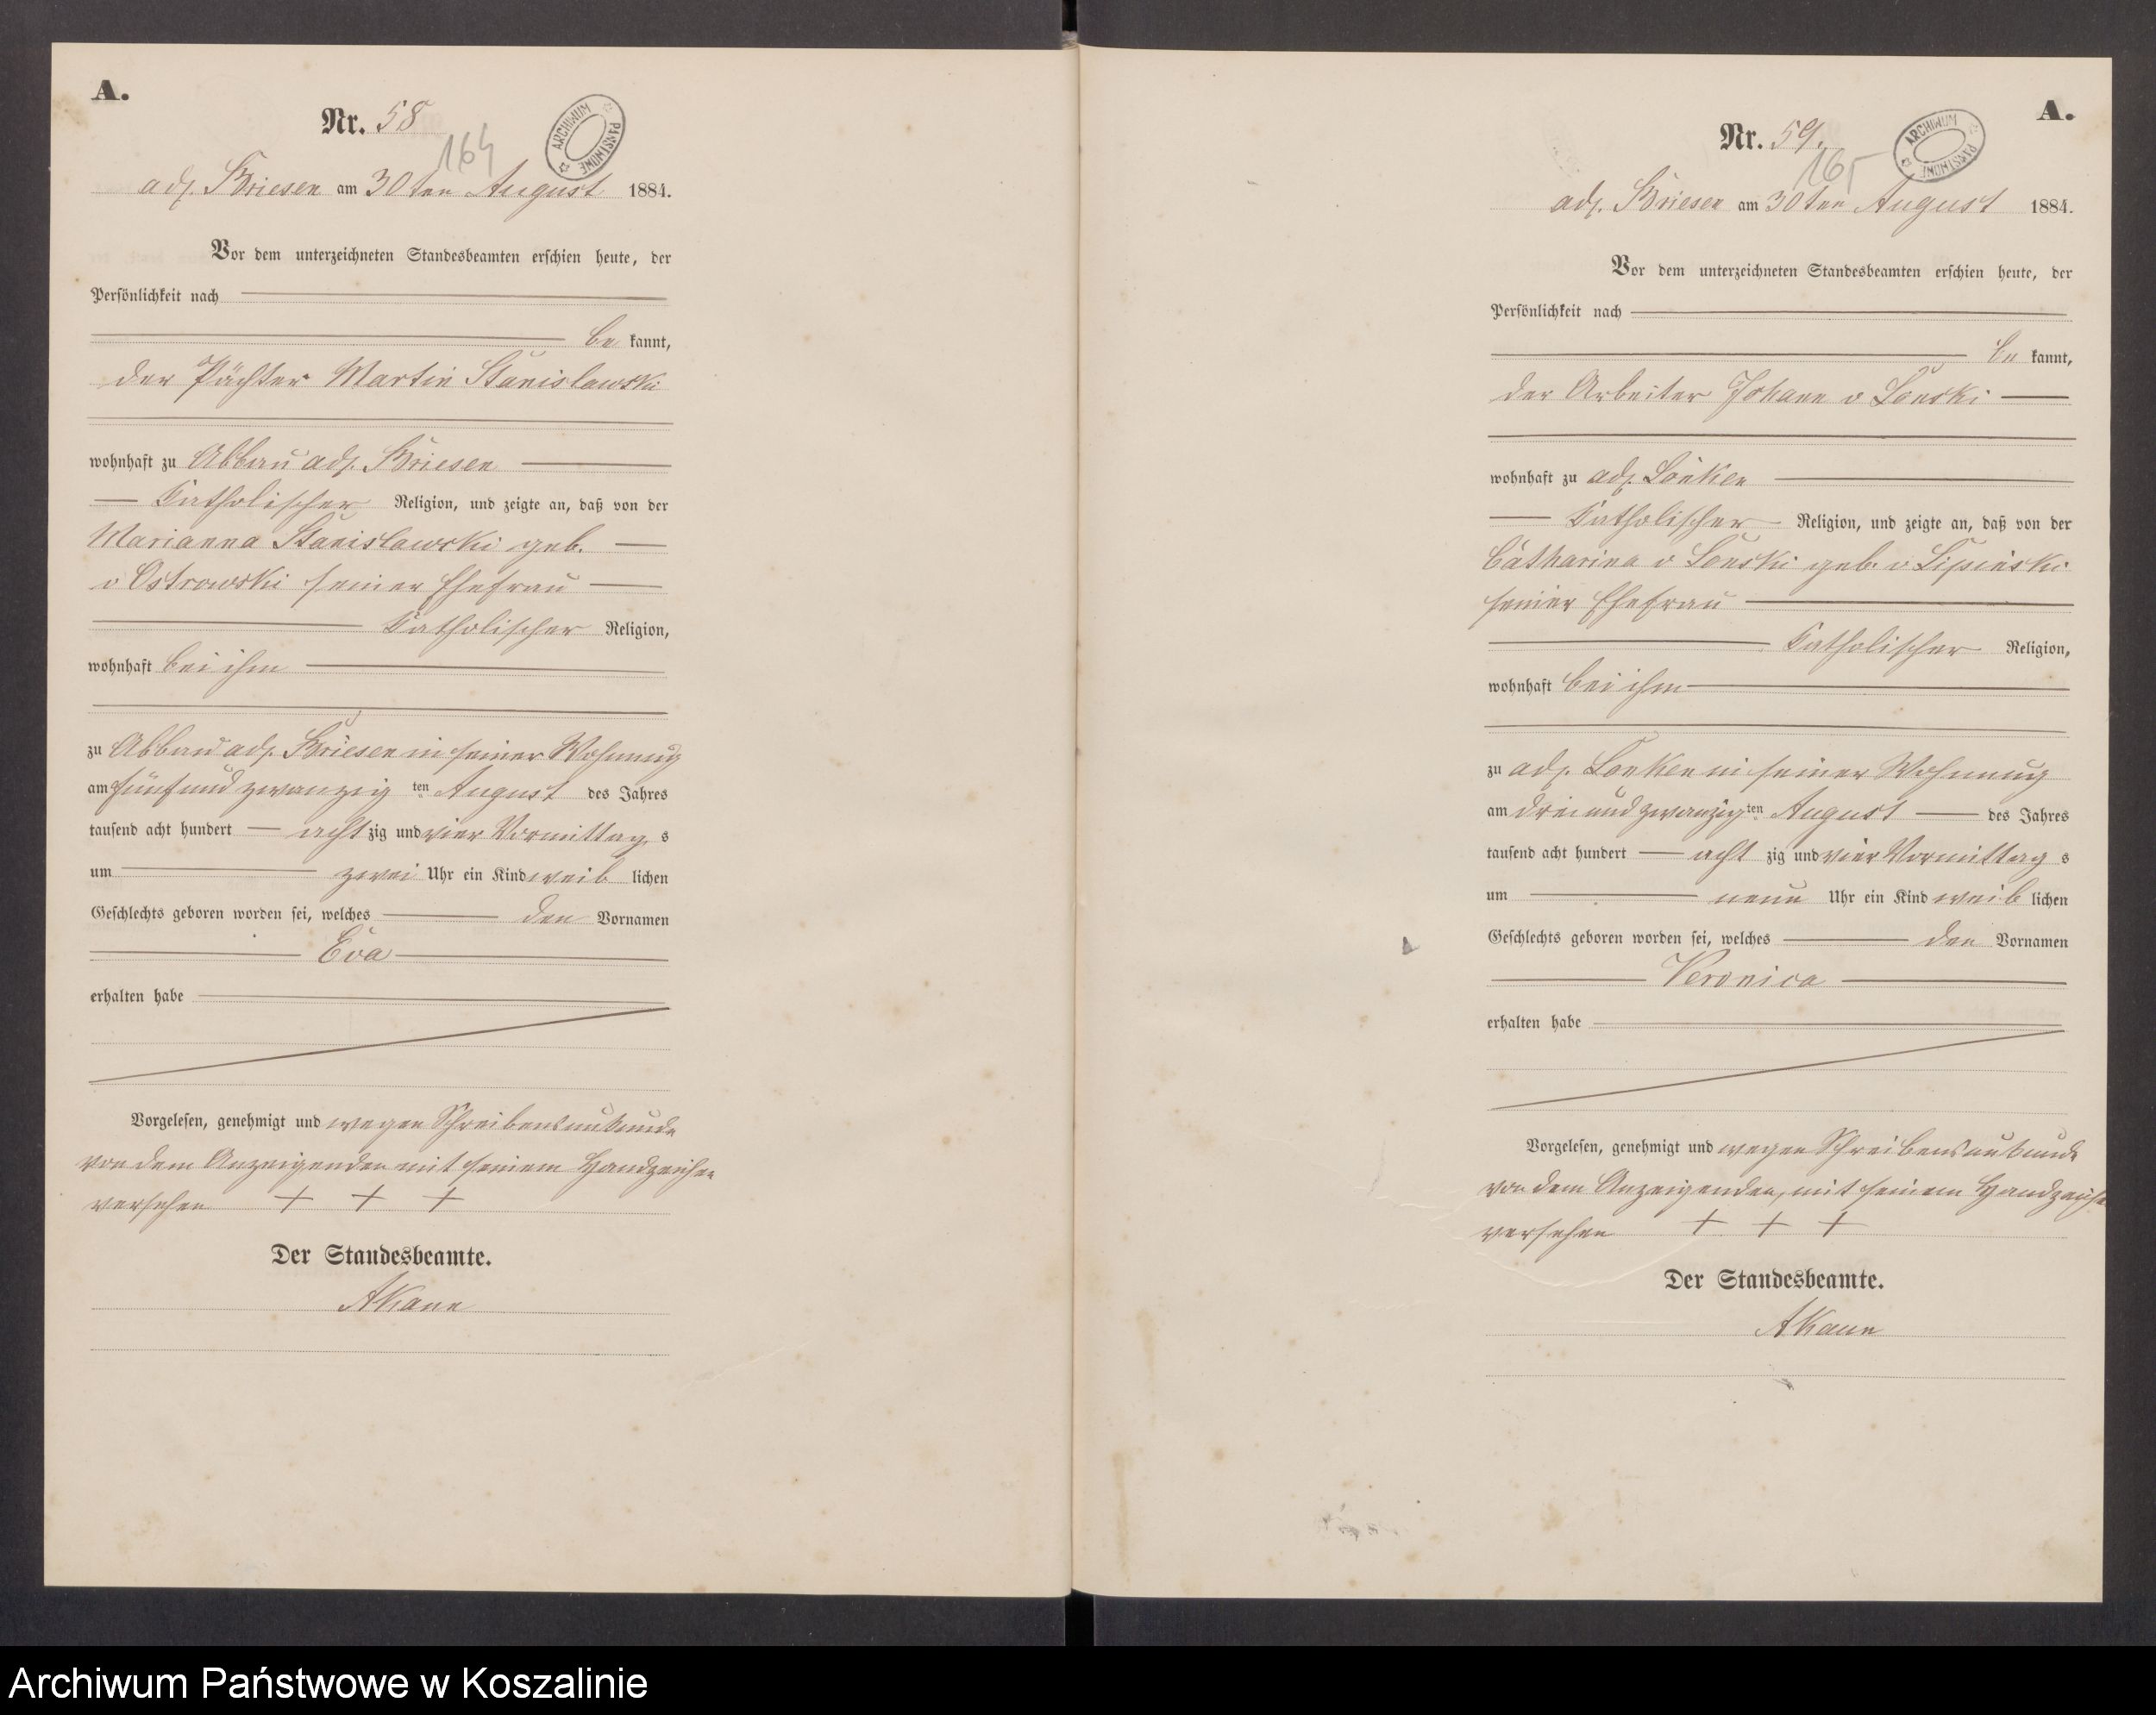 A.
Nr. 58
164
ARCHIWUM PAŃSTWOWE
adl. Briesen am 30ten August 1884.
Vor dem unterzeichneten Standesbeamten erschien heute, der
Persönlichkeit nach
be kannt,
der Pächter Martin Stanislawski
wohnhaft zu Abbau adl. Briesen
katholischer Religion, und zeigte an, daß von der
Marianna Stanislawski geb.
v Ostrowski seiner Ehefrau
katholischer Religion,
wohnhaft bei ihm
zu Abbau adl. Briesen in seiner Wohnung
am fünf und zwanzig ten August des Jahres
tausend acht hundert acht zig und vier Vormittag s
um zwei Uhr ein Kind weib lichen
Geschlechts geboren worden sei, welches den Vornamen
Eva
erhalten habe
Vorgelesen, genehmigt und wegen Schreibensunkunde
von dem Anzeigenden mit seinem Handzeichen
versehen + + +
Der Standesbeamte.
AKann
A.
Nr. 59.
165
ARCHIWUM PAŃSTWOWE
adl. Briesen am 30ten August 1884.
Vor dem unterzeichneten Standesbeamten erschien heute, der
Persönlichkeit nach
be kannt,
der Arbeiter Johann v Lonski
wohnhaft zu adl. Lonken
katholischer Religion, und zeigte an, daß von der
Catharina v Lonski geb. v Lipinski
seiner Ehefrau
katholischer Religion,
wohnhaft bei ihm
zu adl. Lonken in seiner Wohnung
am drei und zwanzig ten August des Jahres
tausend acht hundert acht zig und vier Vormittag s
um neun Uhr ein Kind weib lichen
Geschlechts geboren worden sei, welches den Vornamen
Veronica
erhalten habe
Vorgelesen, genehmigt und wegen Schreibensunkunde
von dem Anzeigenden, mit seinem Handzeichen
versehen + + +
Der Standesbeamte.
AKann
Archiwum Państwowe w Koszalinie